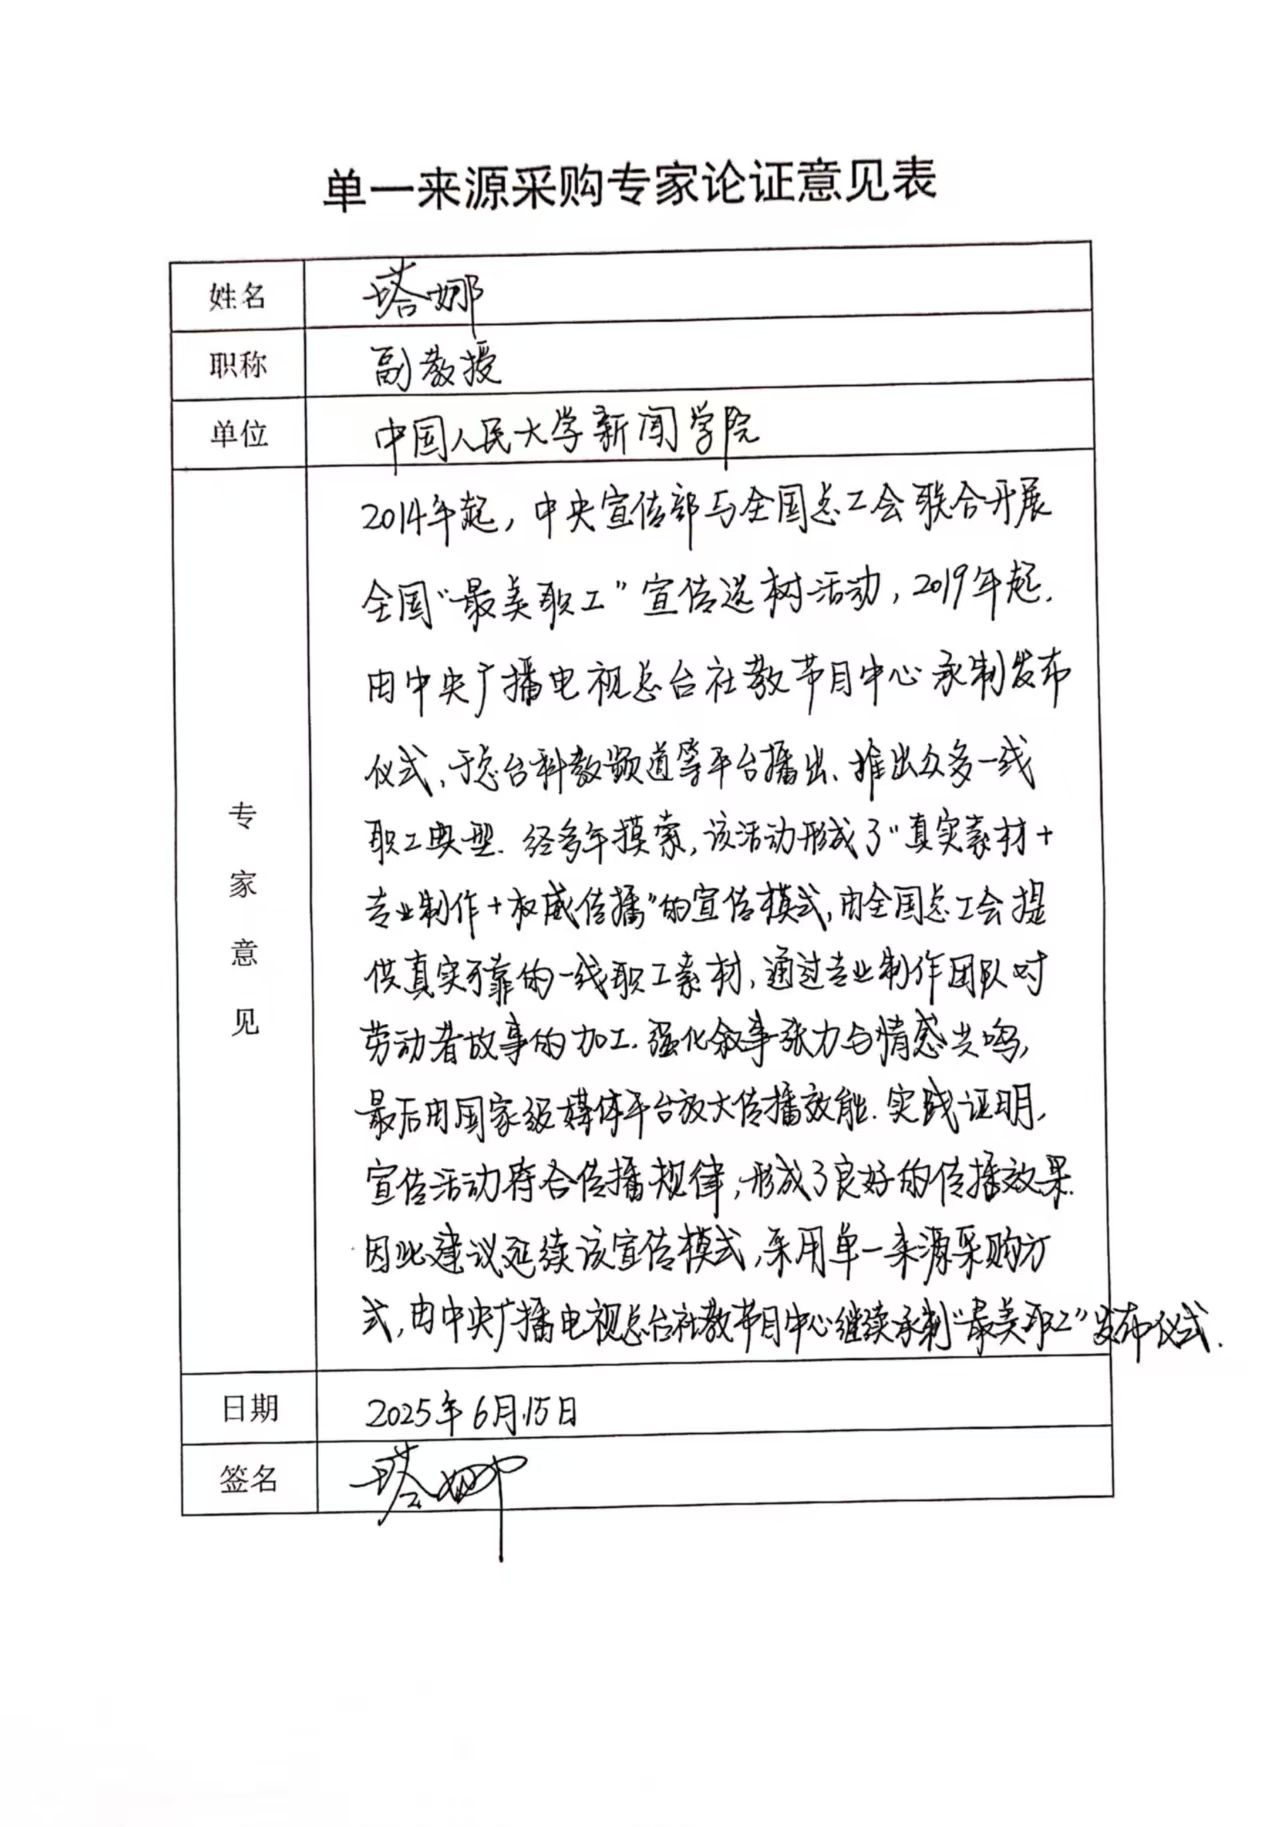 单一来源采购专家论证意见表
姓名 塔娜
职称 副教授
单位 中国人民大学新闻学院
专家意见
2014年起，中央宣传部与全国总工会联合开展
全国“最美职工”宣传选树活动，2019年起，
由中央广播电视总台社教节目中心承制发布
仪式，于总台科教频道等平台播出、推出众多一线
职工典型．经多年摸索，该活动形成了“真实素材＋
专业制作＋权威传播”的宣传模式，由全国总工会提
供真实可靠的一线职工素材，通过专业制作团队对
劳动者故事的加工．强化叙事张力与情感共鸣，
最后由国家级媒体平台放大传播效能．实践证明，
宣传活动符合传播规律，形成了良好的传播效果．
因此建议延续该宣传模式，采用单一来源采购方
式，由中央广播电视总台社教节目中心继续承制“最美职工”发布仪式．
日期 2025年6月15日
签名 塔娜